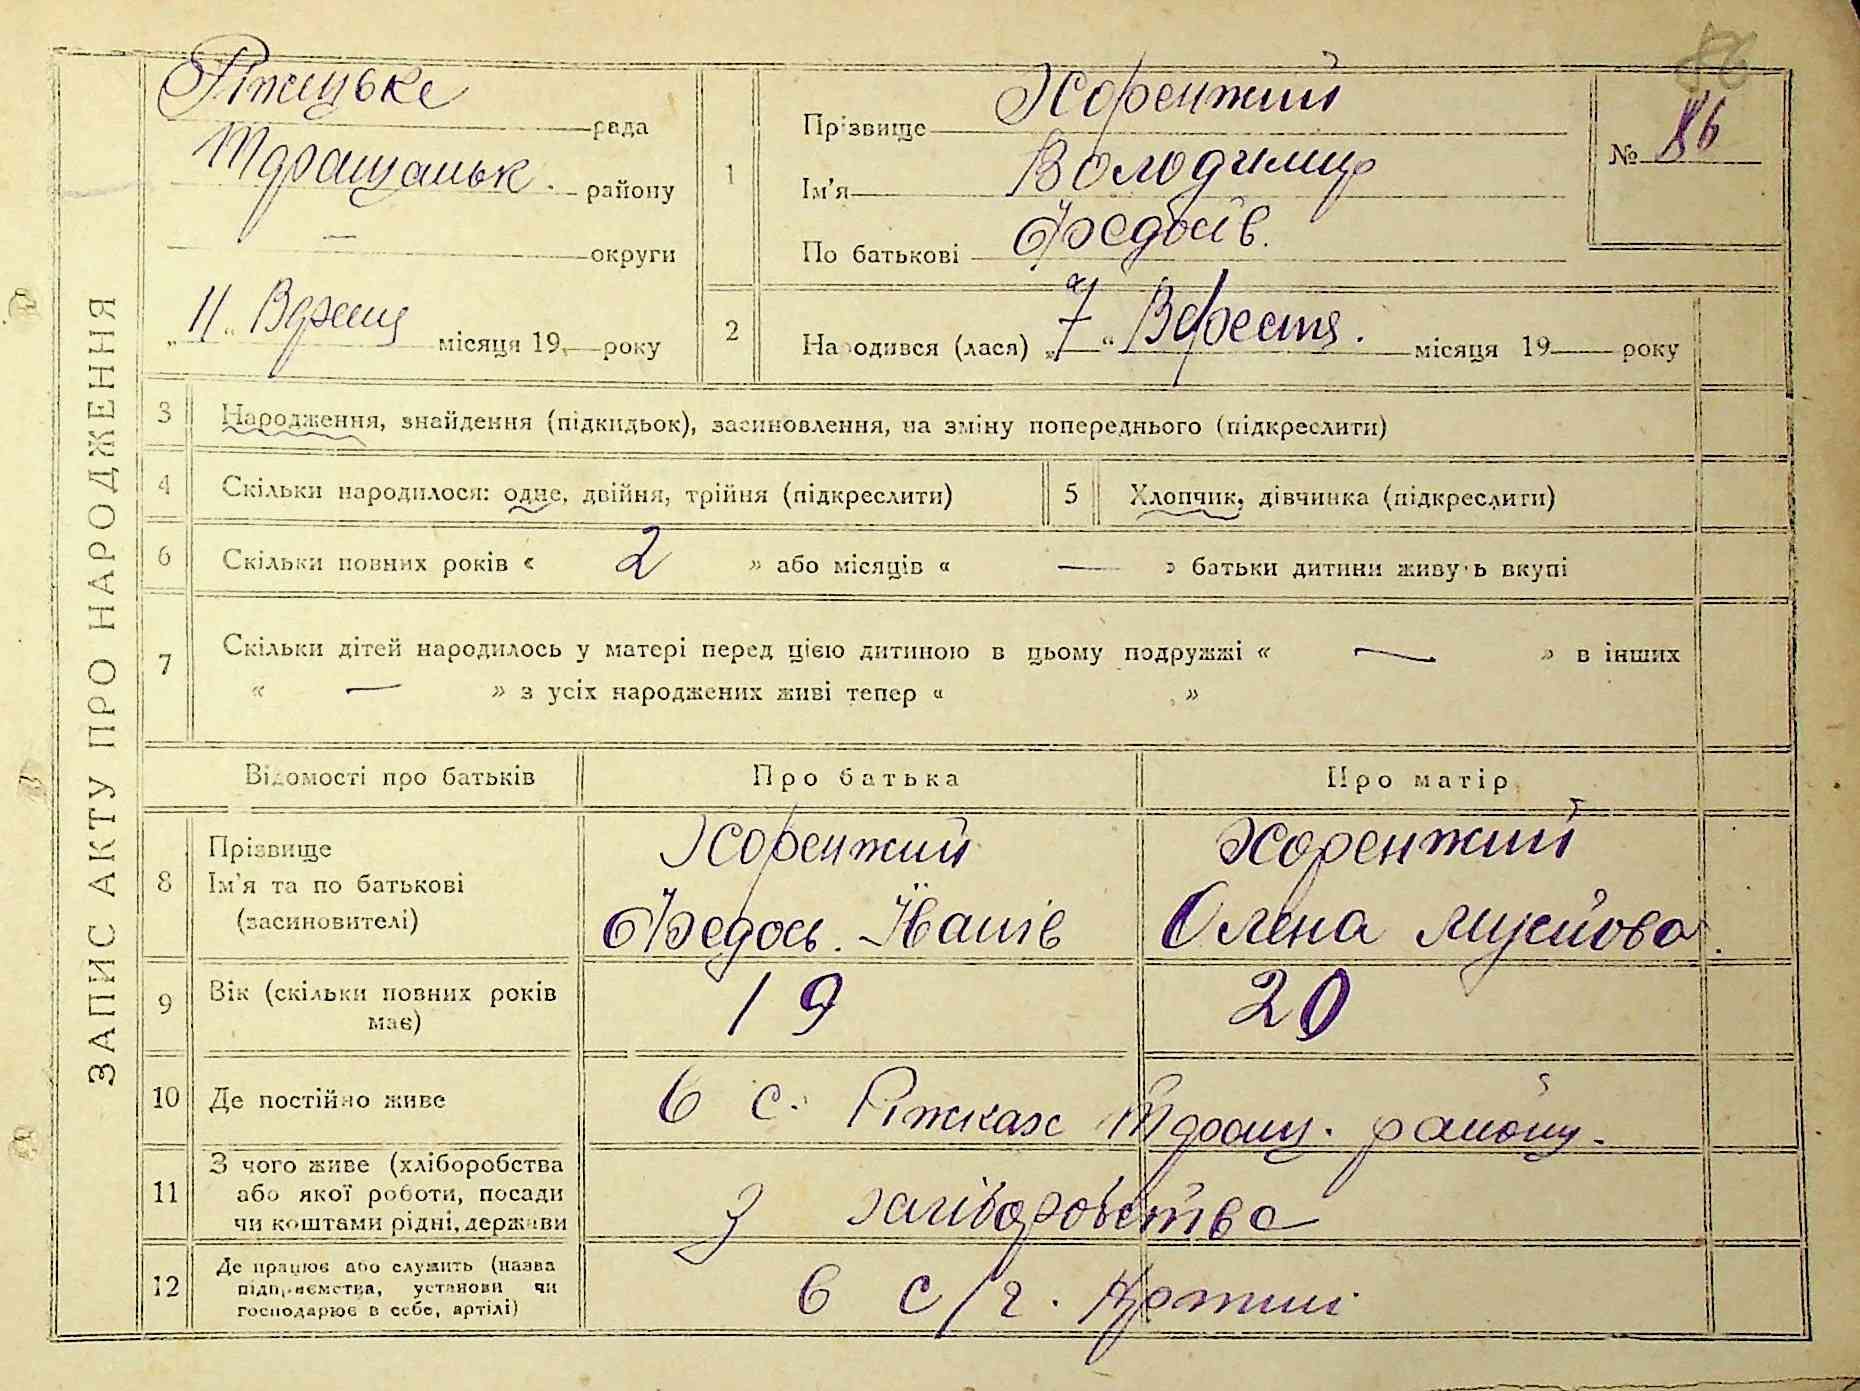 86
ЗАПИС АКТУ ПРО НАРОДЖЕННЯ
Ріжицьке рада
району
— округи
„11“ місяця 19 — року
1
Прізвище Хоренжий
Ім'я Володимир
По батькові Федосів.
№ 86
2
Народився (лася) „7“ Вересня. місяця 19 — року
3 Народження, знайдення (підкидьок), засиновлення, на зміну попереднього (підкреслити)
4 Скільки народилося: одне, двійня, трійня (підкреслити)
5 Хлопчик, дівчинка (підкреслити)
6 Скільки повних років « 2 » або місяців « — » батьки дитини живуть вкупі
7 Скільки дітей народилось у матері перед цією дитиною в цьому подружжі « — » в інших
« — » з усіх народжених живі тепер « »
Відомості про батьків
Про батька
Про матір
8
Прізвище
Ім'я та по батькові
(засиновителі)
Хоренжий
Федось. Іванів
Хоренжий
Олена Мусійова.
9 Вік (скільки повних років
має)
19
20
10 Де постійно живе
в с. Ріжках району.
11
З чого живе (хліборобства
або якої роботи, посади
чи коштами рідні, держави
З хліборобства
12
Де працює або служить (назва
підприємства, установи чи
господарює в себе, артілі)
в с/г. Артилі